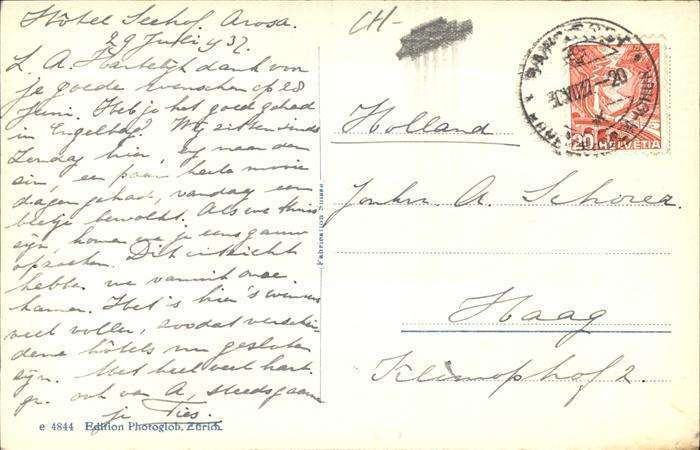 Hôtel Seehof Arosa.
29 Juli '37.
L. A. Hartelijk dank voor
je goede wenschen op 28
Juni. Heb je het goed gehad
in Engelberg? Wij zitten sinds
Zondag hier, en naar den
zin, een paar heele mooie
dagen gehad, vandaag een
beetje bewolkt. Als we thuis
zijn, komen we je eens gauw
opzoeken. Dit uitzicht
hebben we vanuit onze
kamer. Het is hier 's winters
veel voller, zoodat verschei-
dene hôtels nu gesloten
zijn. Met heel veel hart.
gr. ook van A, steeds gaarne
je Ties.
e 4844 Edition Photoglob, Zürich.
Fabrication Suisse
CH-
20 HELVETIA
Holland
Jonkhr. A. Schorer.
Haag